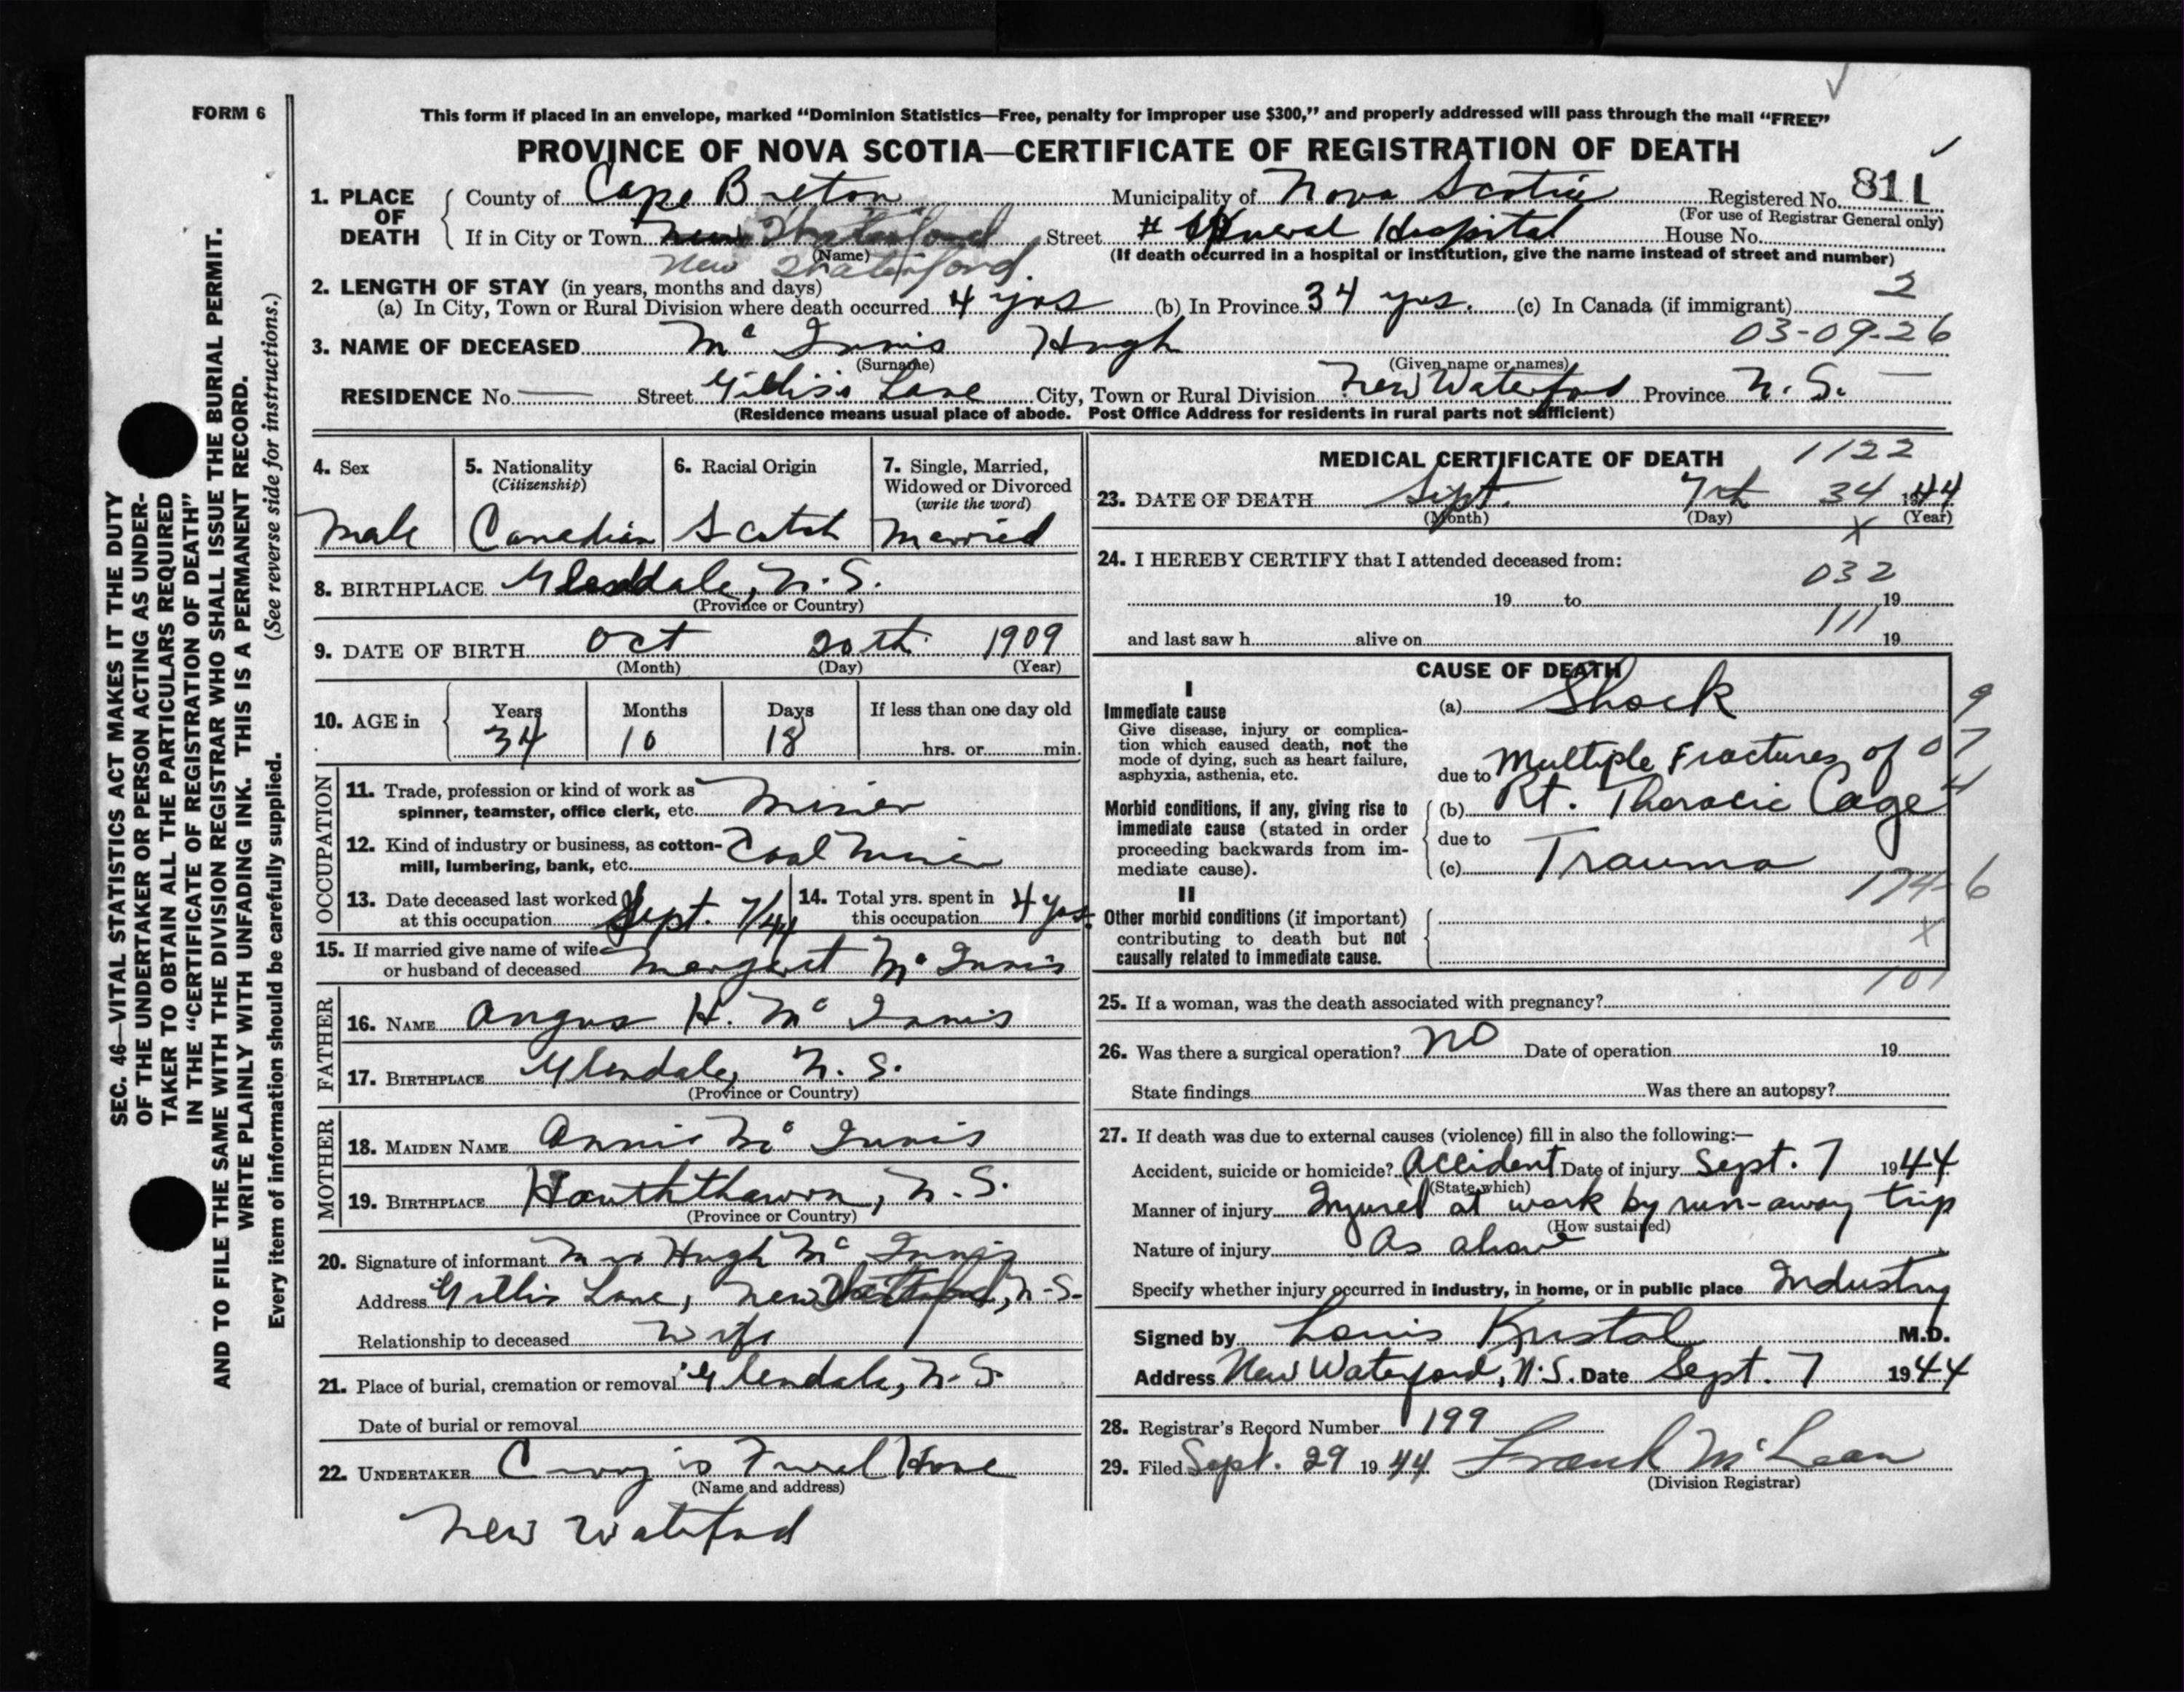 FORM 6
This form if placed in an envelope, marked "Dominion Statistics—Free, penalty for improper use $300," and properly addressed will pass through the mail "FREE"
PROVINCE OF NOVA SCOTIA—CERTIFICATE OF REGISTRATION OF DEATH
1. PLACE OF DEATH County of Cape Breton Municipality of Nova Scotia Registered No. 811
(For use of Registrar General only)
If in City or Town New Waterford Street General Hospital House No.
(Name) (If death occurred in a hospital or institution, give the name instead of street and number)
New Waterford.
2. LENGTH OF STAY (in years, months and days) 2
(a) In City, Town or Rural Division where death occurred 4 yrs (b) In Province 34 yrs. (c) In Canada (if immigrant)
03-09-26
3. NAME OF DECEASED Mc Innis Hugh
(Surname) (Given name or names)
RESIDENCE No. — Street Gillis's Lane City, Town or Rural Division New Waterford Province N. S. —
(Residence means usual place of abode. Post Office Address for residents in rural parts not sufficient)
4. Sex 5. Nationality (Citizenship) 6. Racial Origin 7. Single, Married, Widowed or Divorced (write the word)
Male Canadian Scotch Married
8. BIRTHPLACE Glendale, N. S.
(Province or Country)
9. DATE OF BIRTH Oct 20th 1909
(Month) (Day) (Year)
10. AGE in Years Months Days If less than one day old
34 10 18 hrs. or min.
OCCUPATION
11. Trade, profession or kind of work as spinner, teamster, office clerk, etc. Miner
12. Kind of industry or business, as cotton-mill, lumbering, bank, etc. Coal
13. Date deceased last worked at this occupation Sept. 7/44 14. Total yrs. spent in this occupation 4 yrs.
15. If married give name of wife or husband of deceased Margaret Mc Innis
FATHER
16. NAME Angus H. Mc Innis
17. BIRTHPLACE Glendale, N. S.
(Province or Country)
MOTHER
18. MAIDEN NAME Annie Mc Innis
19. BIRTHPLACE N. S.
(Province or Country)
20. Signature of informant Mrs Hugh Mc Innis
Address Gillis Lane, New Waterford, N-S.
Relationship to deceased Wife
21. Place of burial, cremation or removal Glendale, N-S.
Date of burial or removal
22. UNDERTAKER Home
(Name and address)
New Waterford
MEDICAL CERTIFICATE OF DEATH 1122
23. DATE OF DEATH Sept. 7th 34 1944
(Month) (Day) (Year)
X
24. I HEREBY CERTIFY that I attended deceased from:
032
19 to 19
111
and last saw h alive on 19
CAUSE OF DEATH
I
Immediate cause
Give disease, injury or complication which caused death, not the mode of dying, such as heart failure, asphyxia, asthenia, etc.
(a) Shock 9
due to Multiple Fractures of 07
Morbid conditions, if any, giving rise to immediate cause (stated in order proceeding backwards from immediate cause).
(b) Rt. Thoracic Cage 4
due to
(c) Trauma
174-6
II
Other morbid conditions (if important) contributing to death but not causally related to immediate cause.
X
101
25. If a woman, was the death associated with pregnancy?
26. Was there a surgical operation? No Date of operation 19
State findings Was there an autopsy?
27. If death was due to external causes (violence) fill in also the following:—
Accident, suicide or homicide? Accident Date of injury Sept. 7 1944
(State which)
Manner of injury Injured at work by run-away trip
(How sustained)
Nature of injury As above
Specify whether injury occurred in industry, in home, or in public place Industry
Signed by Louis Kristal M.D.
Address New Waterford, N.S. Date Sept. 7 1944
28. Registrar's Record Number 199
29. Filed Sept. 29 1944 Frank McLean
(Division Registrar)
SEC. 46—VITAL STATISTICS ACT MAKES IT THE DUTY
OF THE UNDERTAKER OR PERSON ACTING AS UNDER-
TAKER TO OBTAIN ALL THE PARTICULARS REQUIRED
IN THE "CERTIFICATE OF REGISTRATION OF DEATH"
AND TO FILE THE SAME WITH THE DIVISION REGISTRAR WHO SHALL ISSUE THE BURIAL PERMIT.
WRITE PLAINLY WITH UNFADING INK. THIS IS A PERMANENT RECORD.
Every item of information should be carefully supplied. (See reverse side for instructions.)